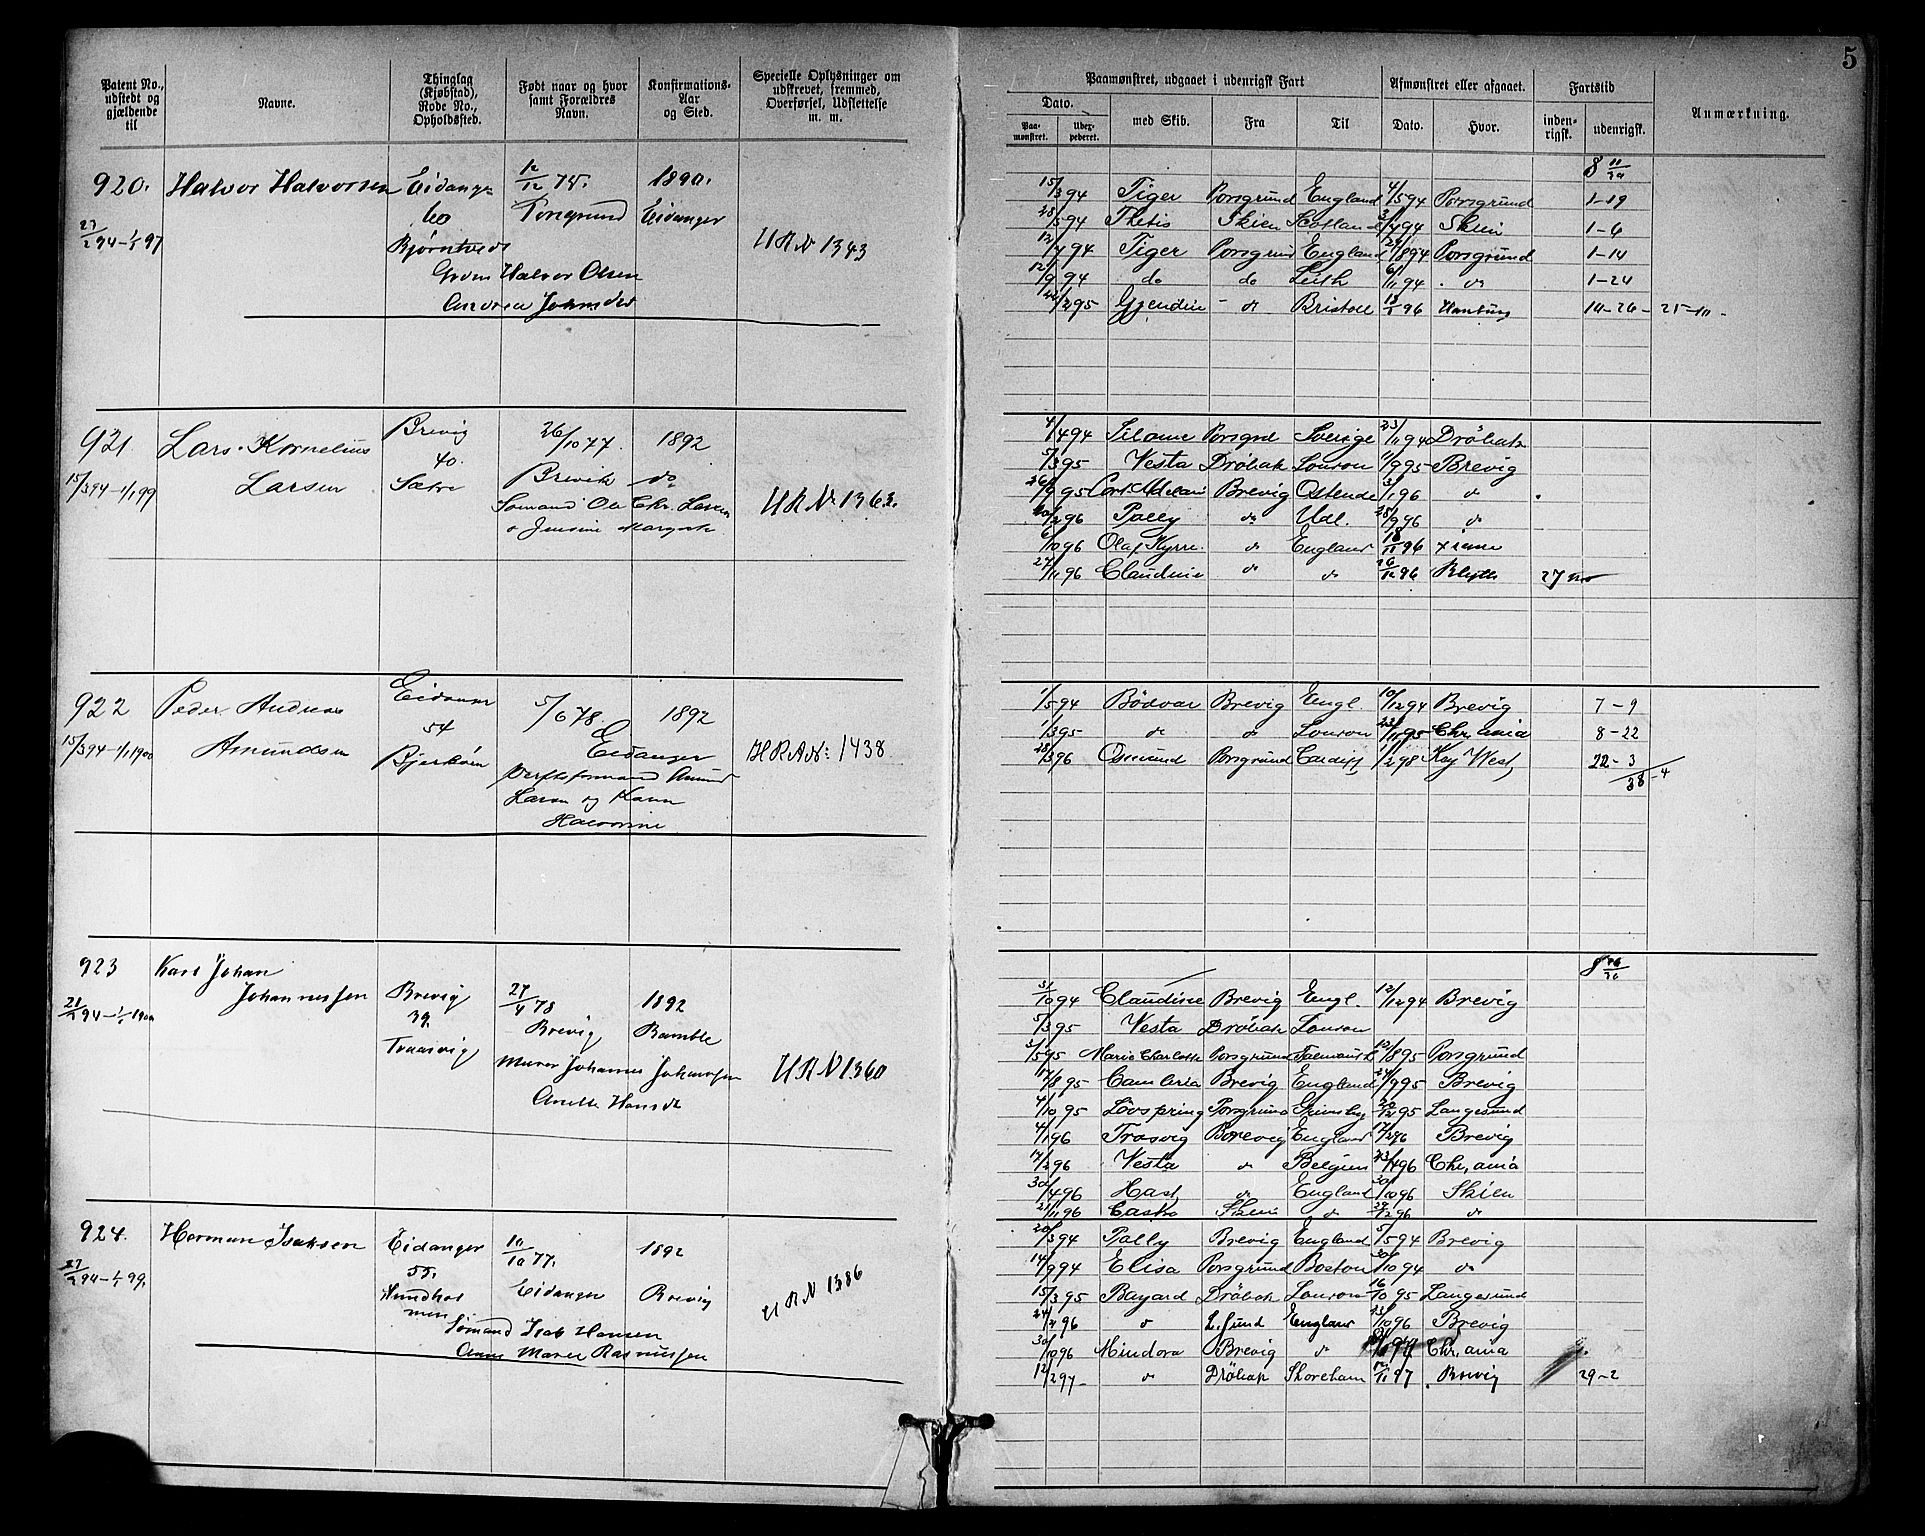 5
Patent No., udstedt og gjældende til
Navne.
Thinglag (Kjøbstad), Rode No., Opholdssted.
Født naar og hvor samt Forældres Navn.
Konfirmations-Aar og Sted.
Specielle Oplysninger om udskrevet, fremmed, Overførsel, Udslettelse m. m.
Paamønstret, udgaaet i udenrigsk Fart
Dato.
Paa-mønstret.
med Skib.
Fra
Til
Afmønstret eller afgaaet.
Dato.
Hvor.
Fartstid
inden-rigsk.
udenrigsk.
Anmærkning.
920. Halvor Halvorsen Eidanger 12/12 75. 1890.
27/2 94-1/1 97 60 Porsgrund Eidanger
Bjørntvedt U R N 1343
Halvor Olsen
Andrea
15/3 94 Tiger Porsgrund England 4/5 94 Porsgrund 1-19
28/5 94 Thetis Skien Scotland 3/7 94 Skien 1-6
12/7 94 Tiger Porsgrund England 24/8 94 Porsgrund 1-14
12/9 94 do do Leith 6/11 94 do 1-24
22/2 95 Gjendin - do Bristol 18/1 96 Hamburg 10-26- 25-10-
921. Lars Kornelius Brevig 26/10 77. 1892
15/3 94-1/1 99 Larsen 40. Sætre Brevik do
Sømand Ole Chr. Larsen U R N 1362.
o Jensine Margrete
4/4 94 Porsgrd Sverige 23/11 94 Drøbak
5/3 95 Vesta Drøbak London 11/9 95 Brevig
26/9 95 Cort Adelaer Brevig Ostende 3/1 96 do
20/2 96 Pally do Udl. 25/9 96 do
6/10 96 Olaf Kyrre. do England 18/11 96
27/11 96 Claudine do do 26/12 96 Blyth 27
922 Peder Andreas Eidanger 5/6 78 1892
15/3 94-1/1 1900 Amundsen 54 Eidanger
Bjerkøen H R A N: 1438
Amund
Larsen og Karen
Halvorine
1/5 94 Bödvar Brevig Engl. 10/12 94 Brevig 7-9
1/3 95 do do London 23/11 95 Chr,ania 8-22
28/3 96 Osmund Porsgrund Cardiff 1/2 98 Key West, 22-3
38-4
923 Karl Johan
Johannessen Brevig 27/4 78 1892
21/2 94-1/1 1900 39. Brevig Bamble
Traasvig Murer Johannes Johannesen U R N 1360
Anette Hansdt
31/10 94 Claudine Brevig Engl. 12/12 94 Brevig
5/3 95 Vesta Drøbak London
3/5 95 Marie Charlotte Porsgrund Falmouth 13/8 95 Porsgrund
17/8 95 Cambria Brevig England 24/9 95 Brevig
4/10 95 Løvspring Porsgrund Grimsby 20/12 95 Langesund
4/1 96 Trosvig Brevig England 17/2 96 Brevig
17/2 96 Vesta do Belgien 23/4 96 Chr,ania
30/4 96 Hast, do England 30/10 96 Skien
21/11 96 Castro Skien do 29/12 96 do
924. Herman Isaksen Eidanger 10/10 77. 1892
27/2 94-1/1 99. 55. Eidanger Brevig
Sundhol
men U R N 1386
Sømand Isak Hansen
Anne Maren Rasmussen
20/3 94 Pally Brevig England 5/5 94 Brevig
14/9 94 Elisa Porsgrund Boston 30/10 94 do
15/3 95 Bayard Drøbak London 16/10 95 Langesund
24/2 96 do L.sund England 13/10 96 Brevig
30/10 96 Mindora Brevig do Chr,ania
12/2 97 do Drøbak Shoreham 12/11 97 Brevig 29-2